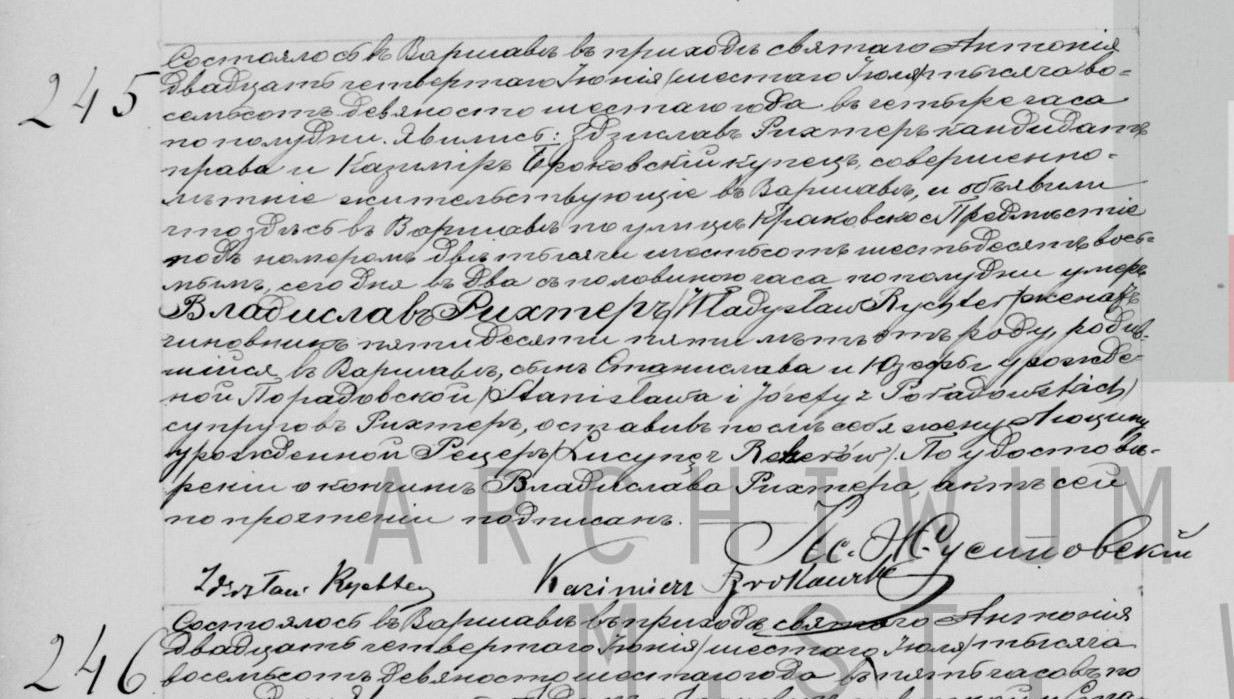 245
Состоялось въ Варшавѣ въ приходѣ святаго Антонія
двадцать четвертаго Іюня /шестаго Іюля/ тысяча во-
семьсотъ девяносто шестаго года въ четыре часа
по полудни. Явились: Здзиславъ Рихтеръ кандидатъ
права и Казиміръ Броковскій купецъ, совершенно-
лѣтніе жительствующіе въ Варшавѣ, и объявили
что здѣсь въ Варшавѣ по улицѣ Краковское Предмѣстіе
подъ номеромъ двѣ тысячи шестьсотъ шестьдесятъ вось-
мымъ, сегодня въ два съ половиною часа по полудни умеръ
Владиславъ Рихтеръ /Władysław Rychter/ женатъ
чиновникъ пятидесяти пяти лѣтъ отъ роду, родив-
шійся въ Варшавѣ, сынъ Станислава и Юзефы урожде-
ной Порадовской /Stanisława i Józefy z Poradowskich/
супруговъ Рихтеръ, оставивъ послѣ себя жену Люцину
урожденной Рецеръ /Lucynę z Reherów/. По удостовѣ-
реніи о кончинѣ Владислава Рихтера, актъ сей
по прочтеніи подписанъ.
Кс. Жусиновскій
Zdzisław Rychter Kazimierz Brokowski
246
Состоялось въ Варшавѣ въ приходѣ святаго Антонія
двадцать четвертаго Іюня /шестаго Іюля/ тысяча
восемьсотъ девяносто шестаго года въ пять часовъ по
ARCHIWUM